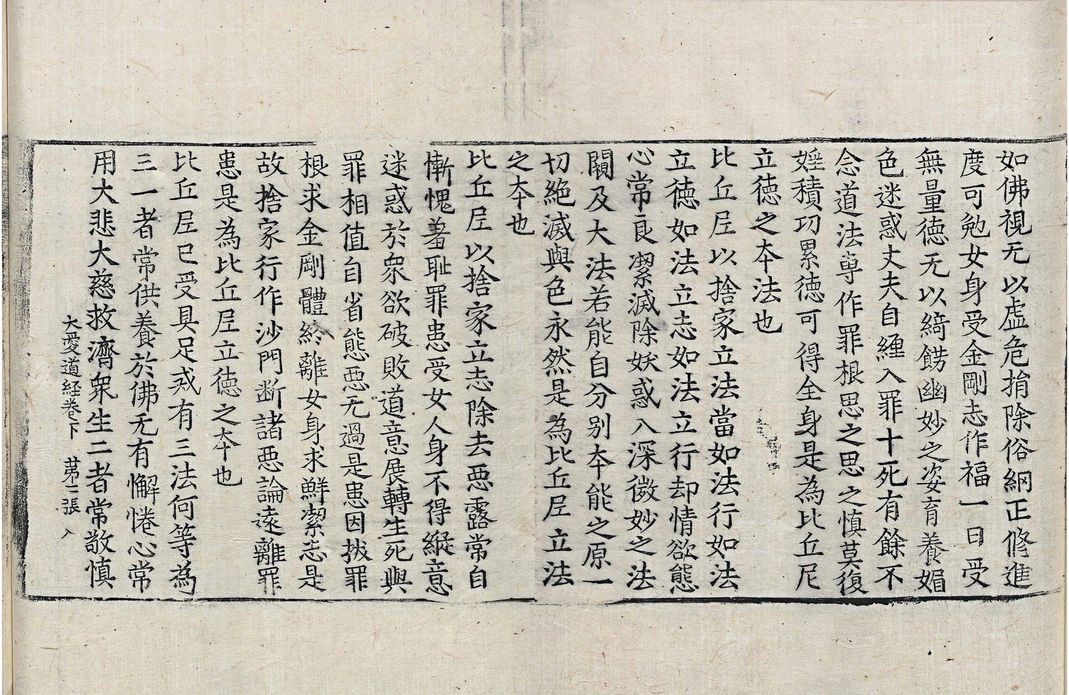 如佛視无以虛危捐除俗網正脩進
度可勉女身受金剛志作福一日受
無量德无以綺䬶幽妙之姿育養媚
色迷惑丈夫自纏入罪十死有餘不
念道法専作罪根思之思之慎莫復
婬積功累德可得全身是為比丘尼
立德之夲法也
比丘𡰱以捨家立法當如法行如法
立德如法立志如法立行却情欲態
心常良潔滅除妖惑入深微妙之法
閫及大法若能自分别夲能之原一
切絶滅與色永然是為比丘𡰱立法
之夲也
比丘𡰱以捨家立志除去惡露常自
慚愧羞恥罪患受女人身不得縱意
迷惑於衆欲破敗道意展轉生死與
罪相值自省態惡无過是患因拔罪
根求金剛體終離女身求鮮潔志是
故捨家行作沙門断諸惡論遠離罪
患是為比丘𡰱立德之夲也
比丘𡰱已受具足戒有三法何等為
三一者常供養於佛无有懈惓心常
用大悲大慈救濟衆生二者常敬慎
大愛道経卷下 苐二張 入